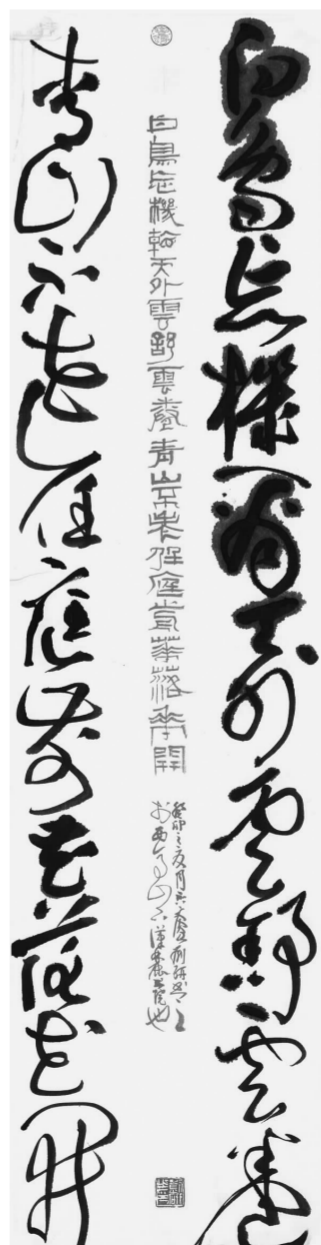 白鳥忘機看天外雲舒雲卷
白鳥忘機看天外雲舒雲卷青山不老任庭前華落華開
癸卯之夏月
青山不老任庭前花落花開